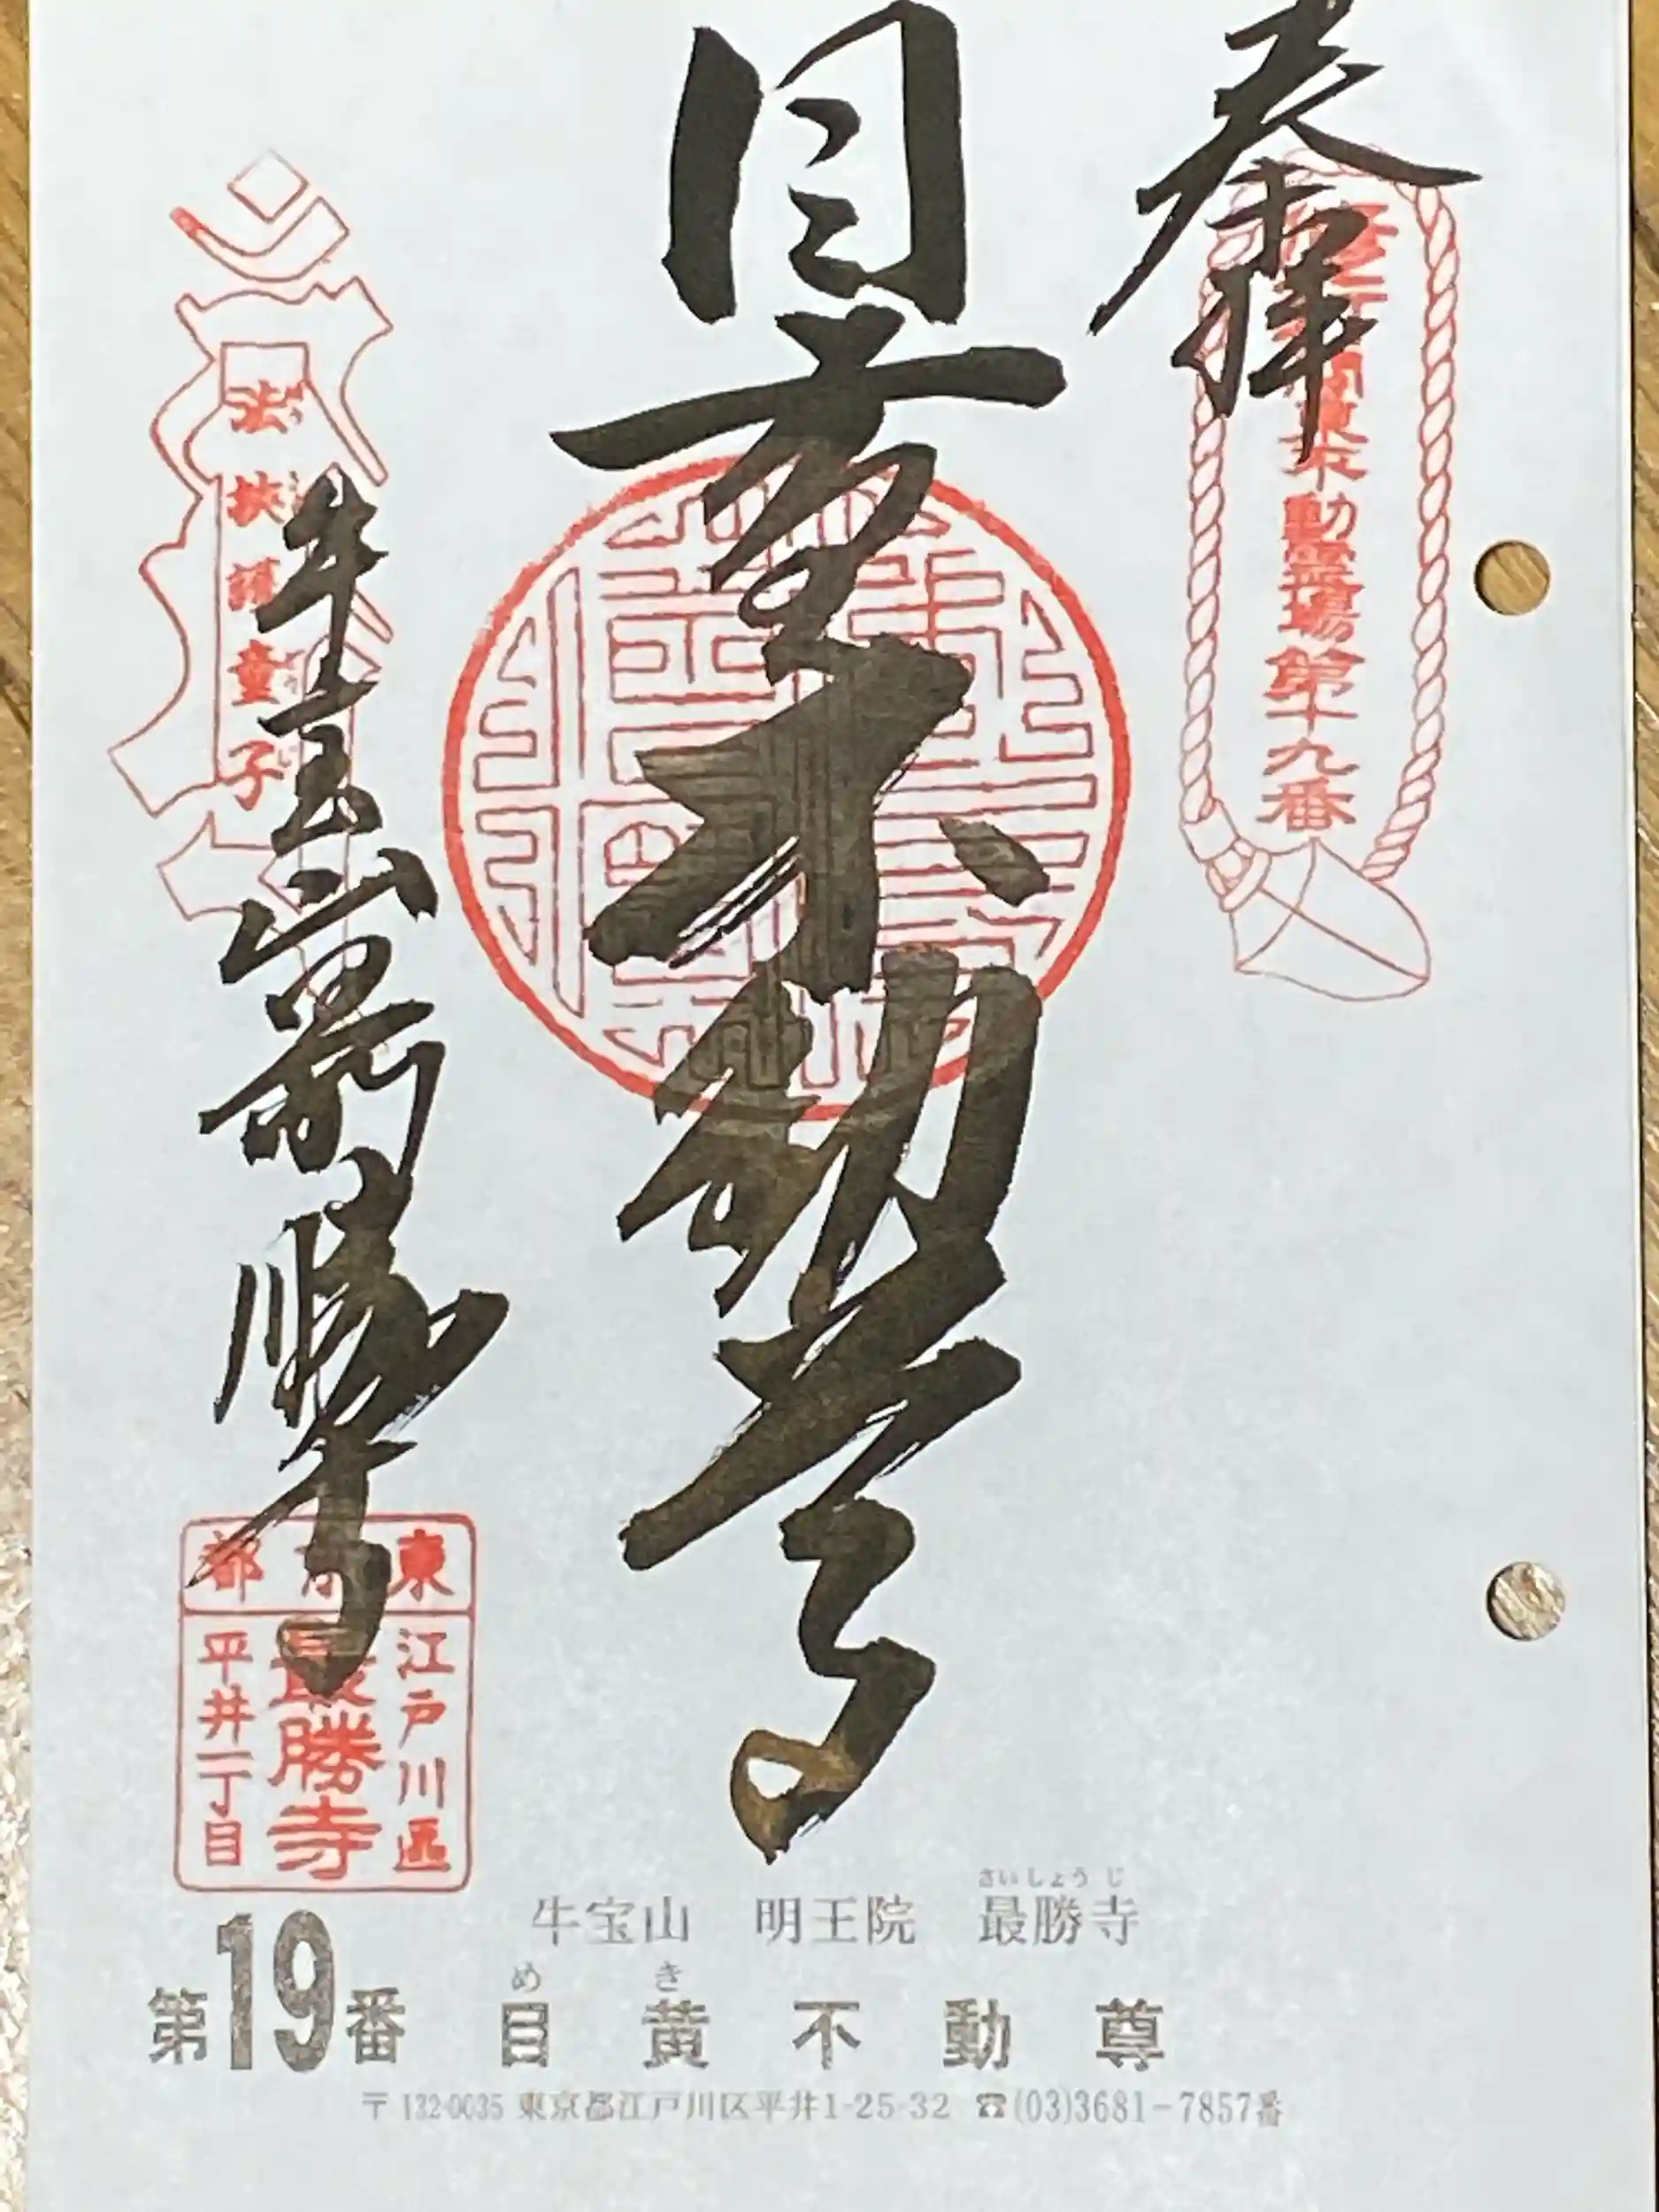 奉拝
東不動霊場第十九番
目黄不動尊
法挟護童子
牛宝山最勝寺
東京都
江戸川區
最勝寺
平井一丁目
さいしょうじ
牛宝山 明王院 最勝寺
めき
第19番 目黄不動尊
〒132-0035 東京都江戸川区平井1-25-32 ☎(03)3681-7857番